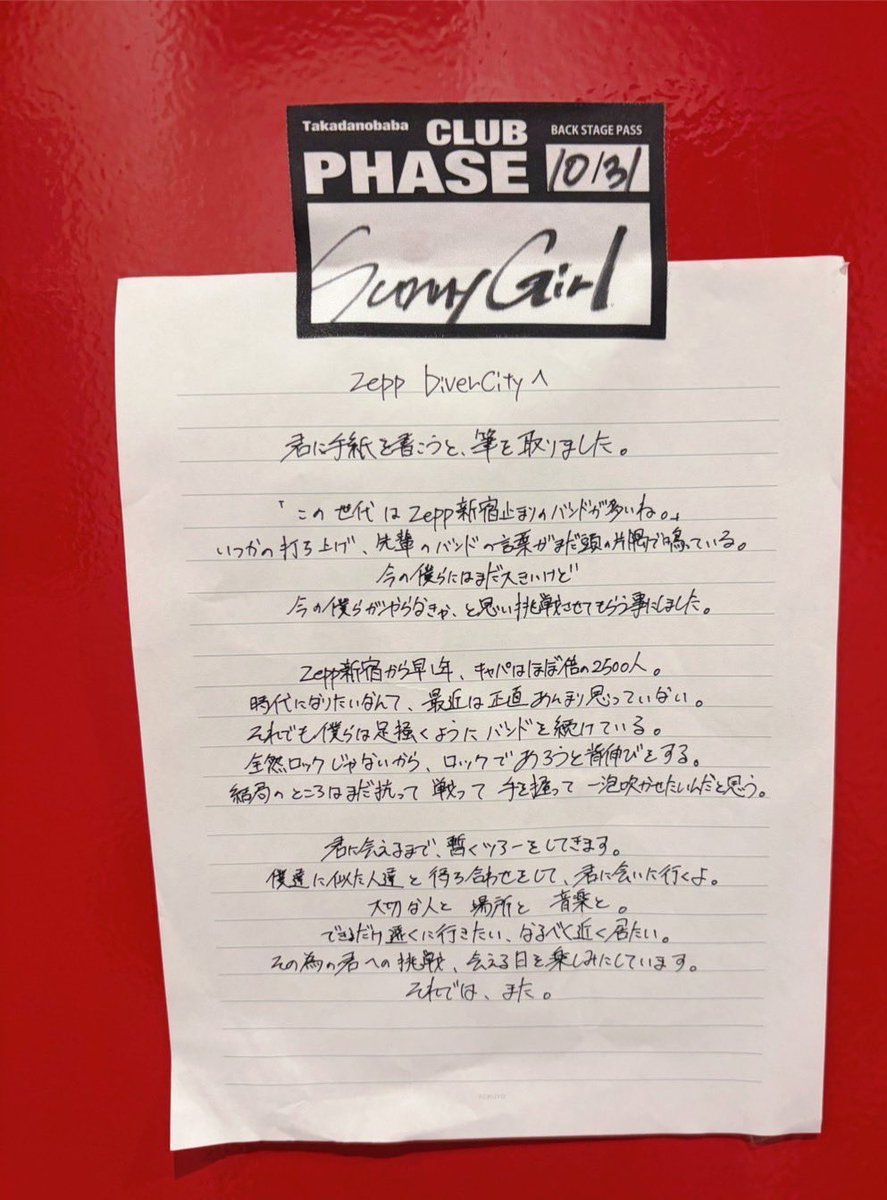 Takadanobaba
CLUB
PHASE
BACK STAGE PASS
10/31
Sunny Girl
Zepp DiverCityへ
君に手紙を書こうと、筆を取りました。
「この世代はZepp新宿止まりのバンドが多いね。」
いつかの打ち上げ、先輩のバンドの言葉がまだ頭の片隅で鳴っている。
今の僕らにはまだ大きいけど
今の僕らがやらなきゃ、と思い挑戦させてもらう事にしました。
Zepp新宿から早1年、キャパはほぼ倍の2500人。
時代になりたいなんて、最近は正直あんまり思っていない。
それでも僕らは足掻くようにバンドを続けている。
全然ロックじゃないから、ロックであろうと背伸びをする。
結局のところはまだ抗って 戦って 手を握って 一泡吹かせたいんだと思う。
君に会えるまで、暫くツアーをしてきます。
僕達に似た人達と待ち合わせをして、君に会いに行くよ。
大切な人と 場所と 音楽と。
できるだけ遠くに行きたい、なるべく近く居たい。
その為の君への挑戦、会える日を楽しみにしています。
それでは、また。
KOKUYO